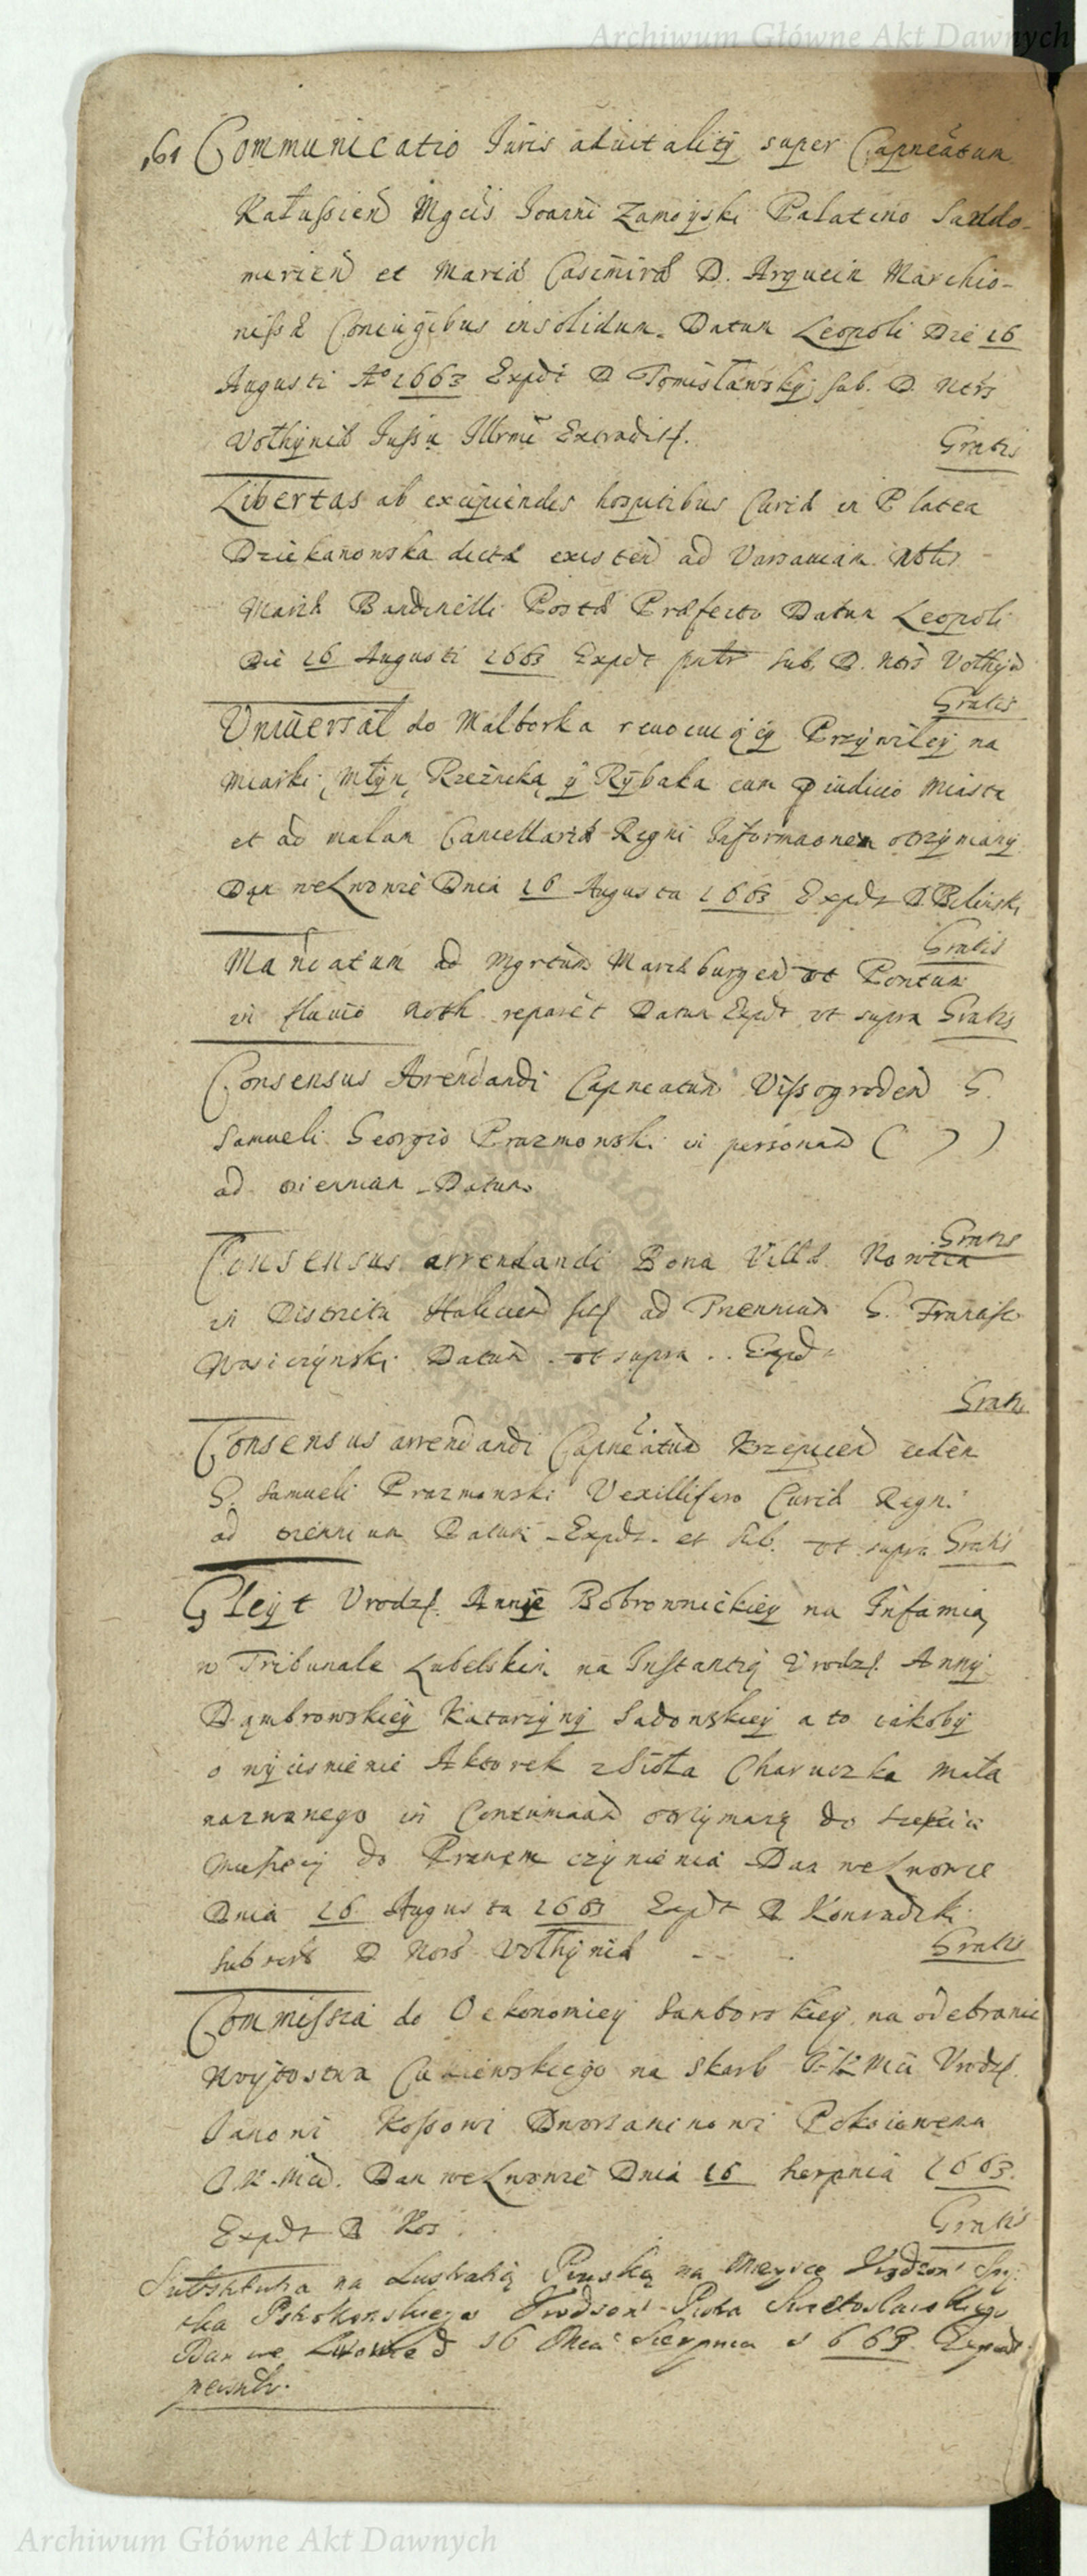 Archiwum Główne Akt Dawnych
161 Communicatio Juris aduitalitÿ super Capneatum
Kałussien Mgcis Joanni Zamoyski Palatino Sando-
merien et Maria Casimira D. Arquein Marchio-
nissa Coniugibus insolidum. Datum Leopoli Die 16
Augusti A° 1663 Expdt D Tomisławskÿ sub. D. Ntrs
Vołhÿnia Jussu Illrmi Extradit.
Gratis
Libertas ab excipiendis hospitibus Curia in Platea
Dziekanowska dicta existen ad Varsauiam Nobli
Bandinelli Posta Prafecto Datum Leopoli
Die 16 Augusti 1663 Expdt sub. D. Ntrs Vołhÿn
Gratis
Vniuersał do Malborka reuocuiąćÿ Przÿwileÿ na
Miarki, Młÿn, Rzeźnika, ÿ Rÿbaka cum piudicio Miasta
et ad malam Cancellaria Regni Informaonem otrzÿmanÿ
Dan we Lwowie Dnia 16 Augusta 1663 Expdt D. Bilinski
Gratis
Mandatum ad Mgrtum Marchburgen vt Pontum
in fluuio Noth reparet Datum Expdt vt supra Gratis
Consensus Arendandi Capneatum Vissogroden G.
Samueli Georgio Prazmowski in personam ( ) )
ad triennium Datum
Gratis
Consensus arrendandi Bona Villa
in Districtu Halicien ad Triennium G. Francisc
Wasiczÿnski Datum vt supra .. Expd
Gratis
Consensus arrendandi Capneatum Krzepicen eiden
G. Samueli Prazmowski Vexillifero Curia Regni
ad triennium Datum Expdt et sub. vt supra Gratis
Gleÿt Vrodz. Annie Bobrownickieÿ na Infamią
w Tribunale Lubelskim na Instantią Vrodz. Annÿ
Dąmbrowskieÿ Katarzÿnÿ Sadowskieÿ a to iakobÿ
o wÿcisnienie Aktorek z Sioła Charuczka Mała
nazwanego in Contumaciam otrzÿmaną do
do Prawem czÿnienia Dan we Lwowie
Dnia 16 Augusta 1663 Expdt D Konradzki
Subscrb D Ntrs Vołhÿnia
Gratis
Commissia do Oekonomieÿ Samborskieÿ na odebranie
Woÿtostwa na Skarb J. K. Mci Vrodz.
Janowi Kossowi Dworzaninowi Pokoiowemu
J. K. Mci. Dan we Lwowie Dnia 16 Sierpnia 1663.
Expdt D Kos
Gratis
Substituta na Lustratią Pruską na Mieysce
Dan we Lwowie d 16 Mca Sierpnia 1663
Archiwum Główne Akt Dawnych